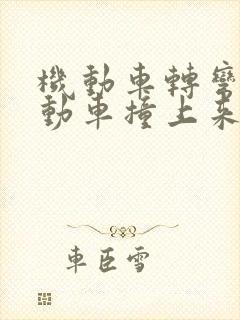 機動車轉彎
動車撞上來
車臣雪